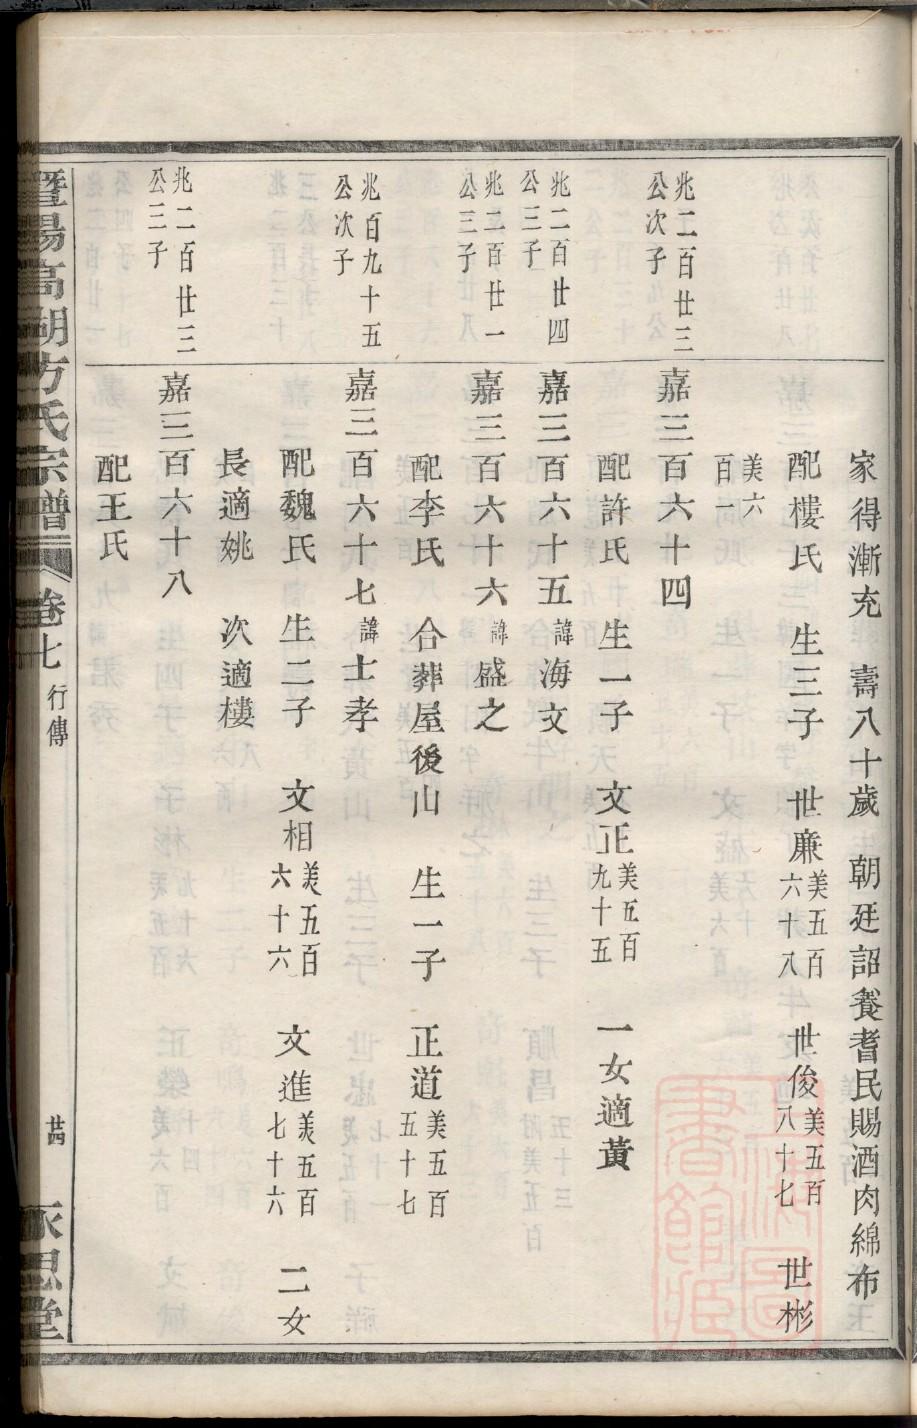 家得漸充　壽八十歲　朝廷詔養耆民賜酒肉綿布
配樓氏　生三子　世廉美五百六十八　世俊美五百八十七　世彬
美六百一
兆二百廿三公次子
嘉三百六十四
配許氏　生一子　文正美五百九十五　一女適黃
兆二百廿四公三子
嘉三百六十五諱海文
兆二百廿一公三子
嘉三百六十六諱盛之
配李氏　合葬屋後山　生一子　正道美五百五十七
兆百九十五公次子
嘉三百六十七諱士孝
配魏氏　生二子　文相美五百六十六　文進美五百七十六　二女
長適姚　次適樓
兆二百廿三公三子
嘉三百六十八
配王氏
暨陽高湖方氏宗譜　卷七　行傳　廿四　永思堂